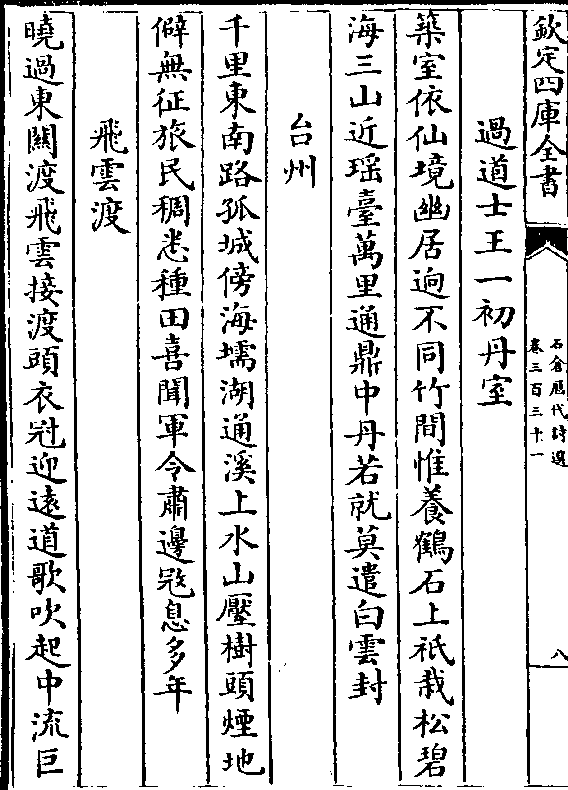 欽定四庫全書
石倉歷代詩選
卷三百三十一
八
過道士王一初丹室
築室依仙境幽居逈不同竹間惟養鶴石上祇栽松碧
海三山近瑶臺萬里通鼎中丹若就莫遣白雲封
台州
千里東南路孤城傍海壖湖通溪上水山壓樹頭煙地
僻無征旅民稠悉種田喜聞軍令肅邊冦息多年
飛雲渡
曉過東關渡飛雲接渡頭衣冠迎逺道歌吹起中流巨